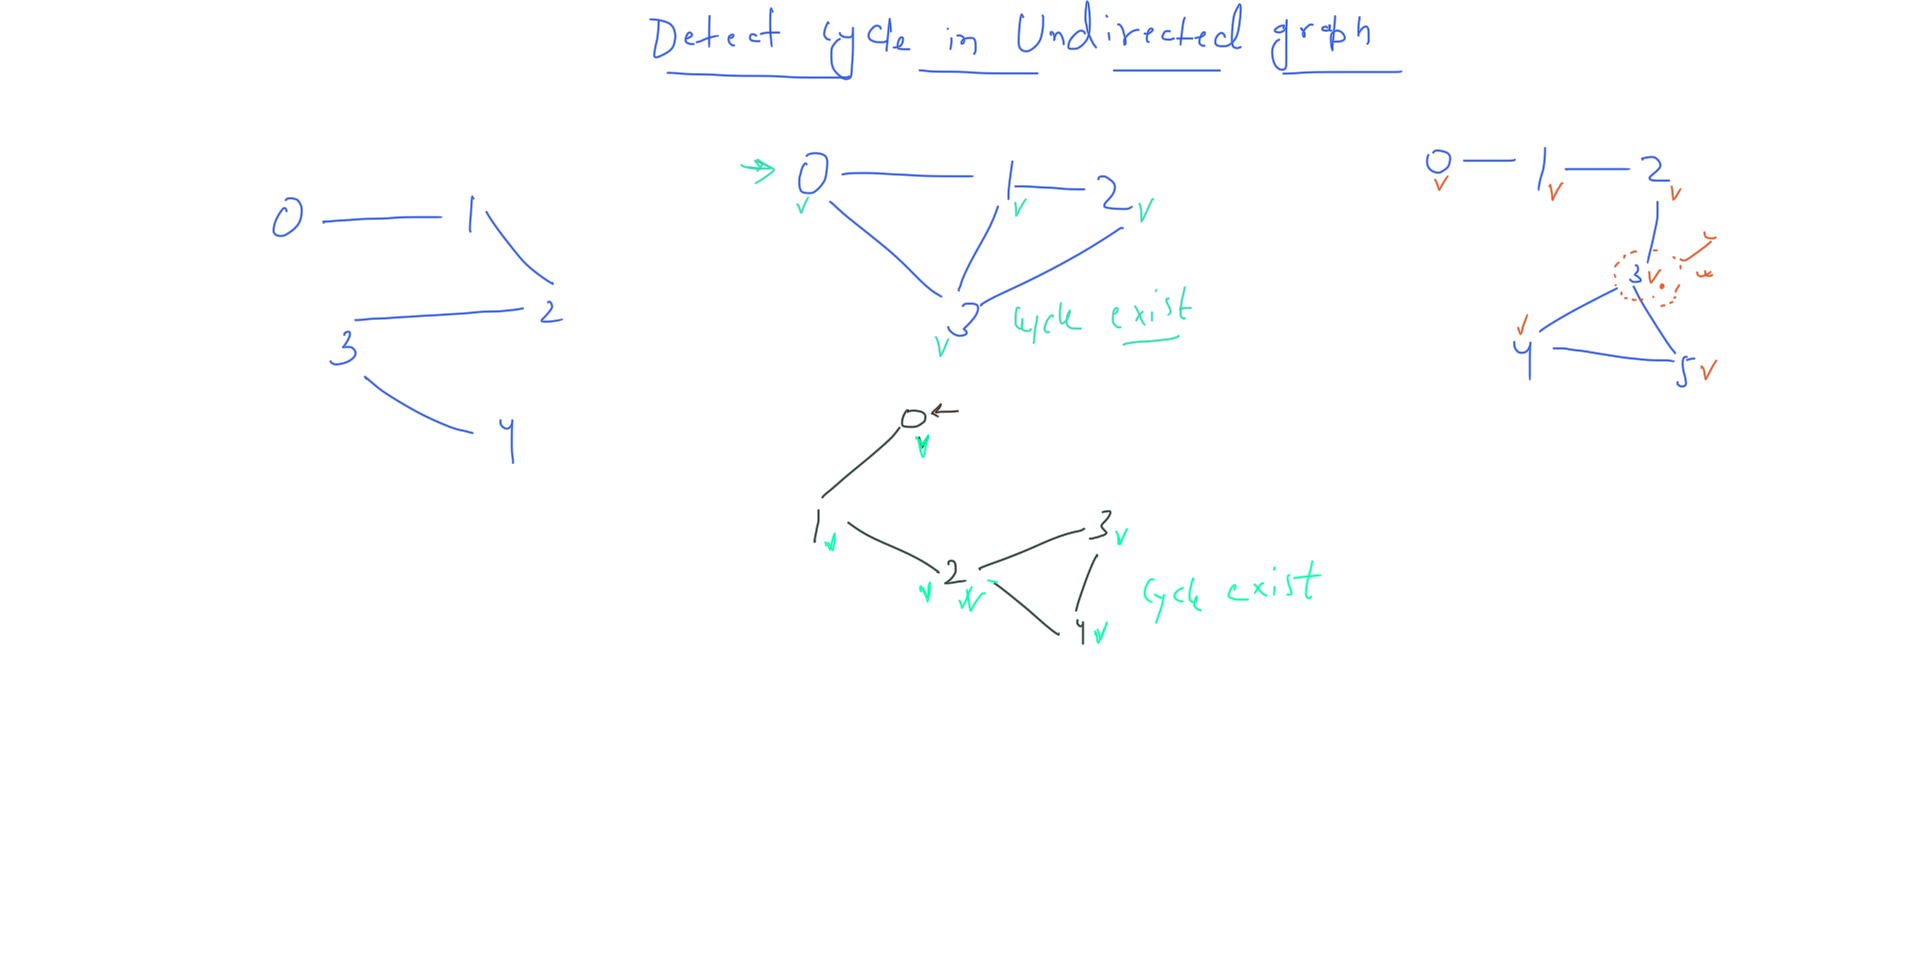 Detect cycle in Undirected graph
0 1
2
3
4
0 1 2
3 cycle exist
0 1 2
3
4 5
0
1
2 3
4
cycle exist